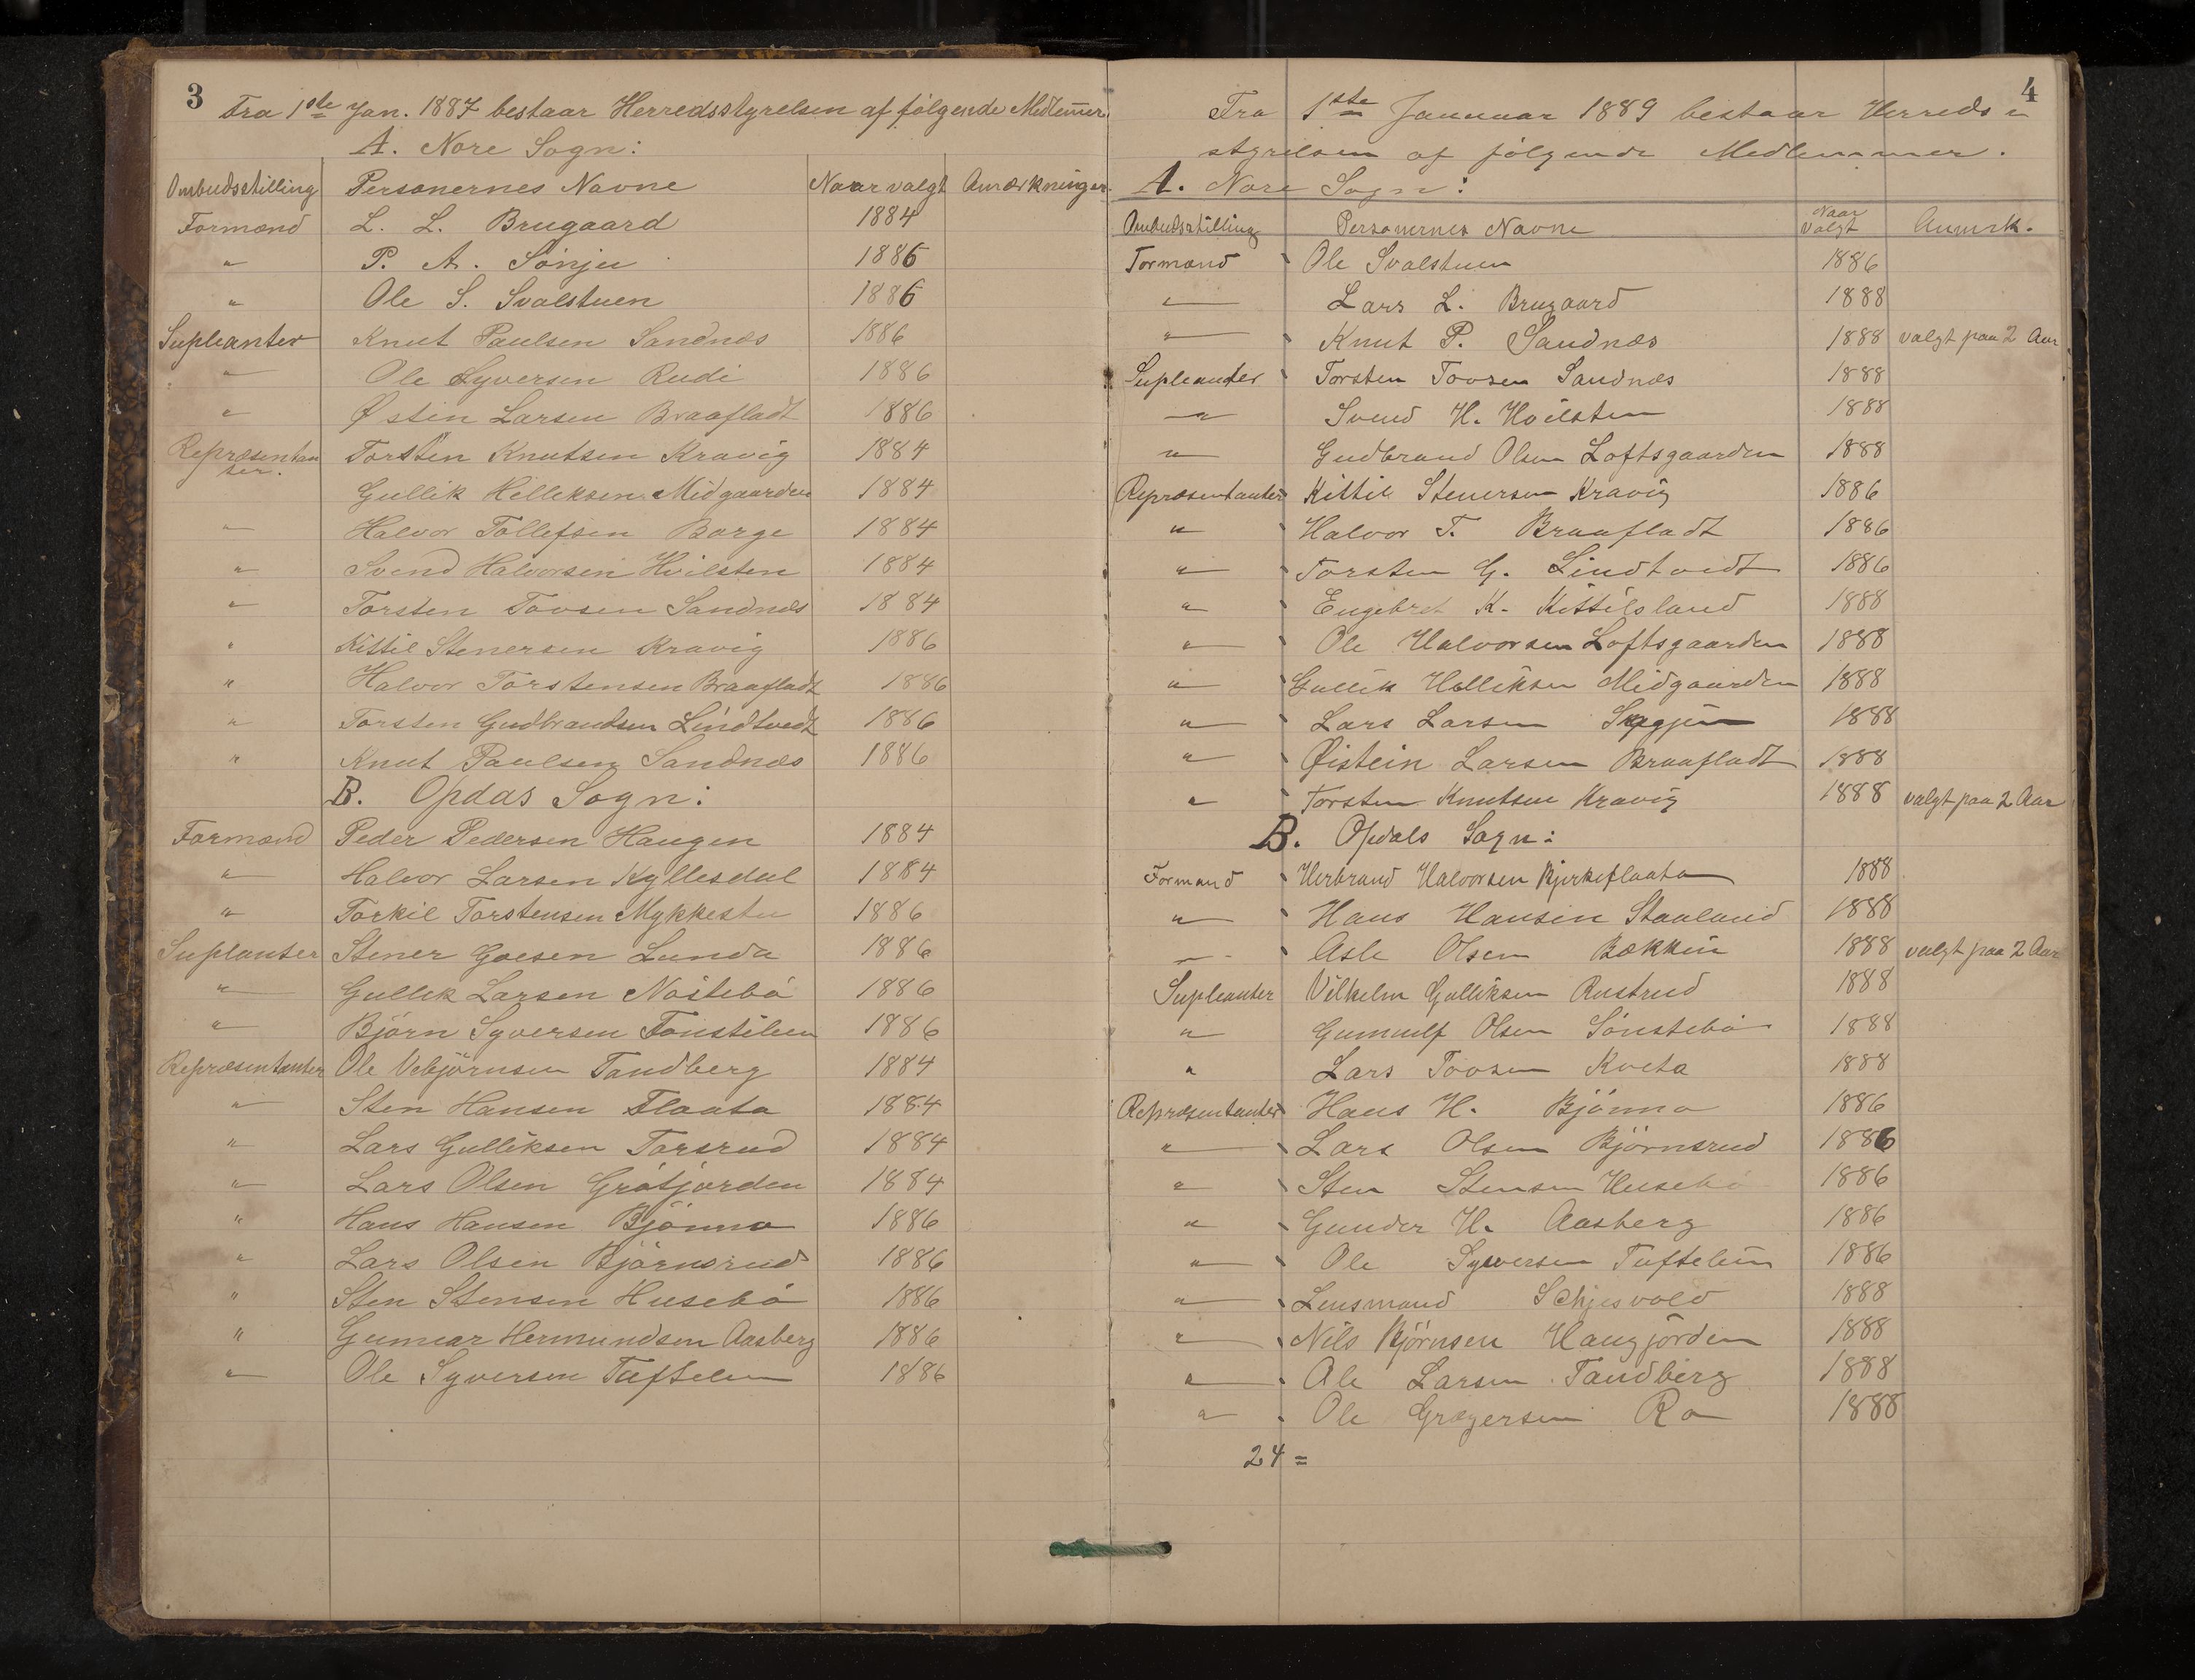 3
Fra 1ste Jan. 1887 bestaar Herredsstyrelsen af følgende Medlemmer
A. Nore Sogn:
Ombudsstilling Personernes Navne Naar valgt Anmærkninger
Formænd L. L. Brugaard 1884
" P. A. Sönju 1886
" Ole S. Svalstuen 1886
Supleanter Knut Paulsen Sandnæs 1886
" Ole Syversen Rudi 1886
" Østen Larsen Braafladt 1886
Repræsentan
ter. Torsten Knutsen Kravig 1884
Gullik Helleksen Midgaarden 1884
" Halvor Tollefsen Borge 1884
" Svend Halvorsen Hvilsten 1884
" Torsten Tovsen Sandnæs 1884
" Kittil Stenersen Kravig 1886
" Halvor Torstensen Braafladt 1886
" Torsten Gudbrandsen Lindtvedt 1886
" Knut Paulsen Sandnæs 1886
B. Opdals Sogn:
Formænd Peder Pedersen Haugen 1884
" Halvor Larsen Kyllesdal 1884
" Torkil Torstensen Mykkestu 1886
Suplanter Stener Goesen Lunda 1886
" Gullik Larsen Nöstebö 1886
" Björn Syversen Tonstilien 1886
Repræsentanter Ole Vebjörnsen Tandberg 1884
" Sten Hansen Flaata 1884
" Lars Gulliksen Torsrud 1884
" Lars Olsen Grötjorden 1884
" Hans Hansen Bjönno 1886
" Lars Olsen Björnsrud 1886
" Sten Stensen Husebö 1886
" Gunnar Hermundsen Aasberg 1886
" Ole Syversen Tuftelien 1886
4
Fra 1ste Januar 1889 bestaar Herreds =
styrelsen af følgende Medlemmer.
A. Nore Sogn:
Ombudsstilling Personernes Navne Naar
valgt Anmrk.
Formænd Ole Svalstuen 1886
" Lars L. Brugaard 1888
" Knut P. Sandnæs 1888 valgt paa 2 Aar
Supleanter Torsten Tovsen Sandnæs 1888
" Svend H. Hvilsten 1888
" Gudbrand Olsen Loftsgaarden 1888
Repræsentanter Kittil Stenersen Kravig 1886
" Halvor T. Braafladt 1886
" Torsten G. Lindtvedt 1886
" Engebret K. Kittilsland 1888
" Ole Halvorsen Loftsgaarden 1888
" Gullik Helliksen Midgaarden 1888
" Lars Larsen 1888
" Øistein Larsen Braafladt 1888
" Torsten Knutsen Kravig 1888 valgt paa 2 Aar
B. Opdals Sogn:
Formænd Herbrand Halvorsen Bjerkeflaata 1888
" Hans Hansen Staaland 1888
" Asle Olsen Bækkin 1888 valgt paa 2 Aar
Supleanter Vilhelm Gulliksen Rustrud 1888
" Gunnulf Olsen Sönstebö 1888
" Lars Tovsen Kveta 1888
Repræsentanter Hans H. Bjönno 1886
" Lars Olsen Björnsrud 1886
" Sten Stensen Husebö 1886
" Gunder H. Aasberg 1886
" Ole Syversen Tuftelien 1886
" Lensmand Schjesvold 1888
" Nils Björnsen Haugjorden 1888
" Ole Larsen Tandberg 1888
" Ole Grøgersen Ro 1888
24 =